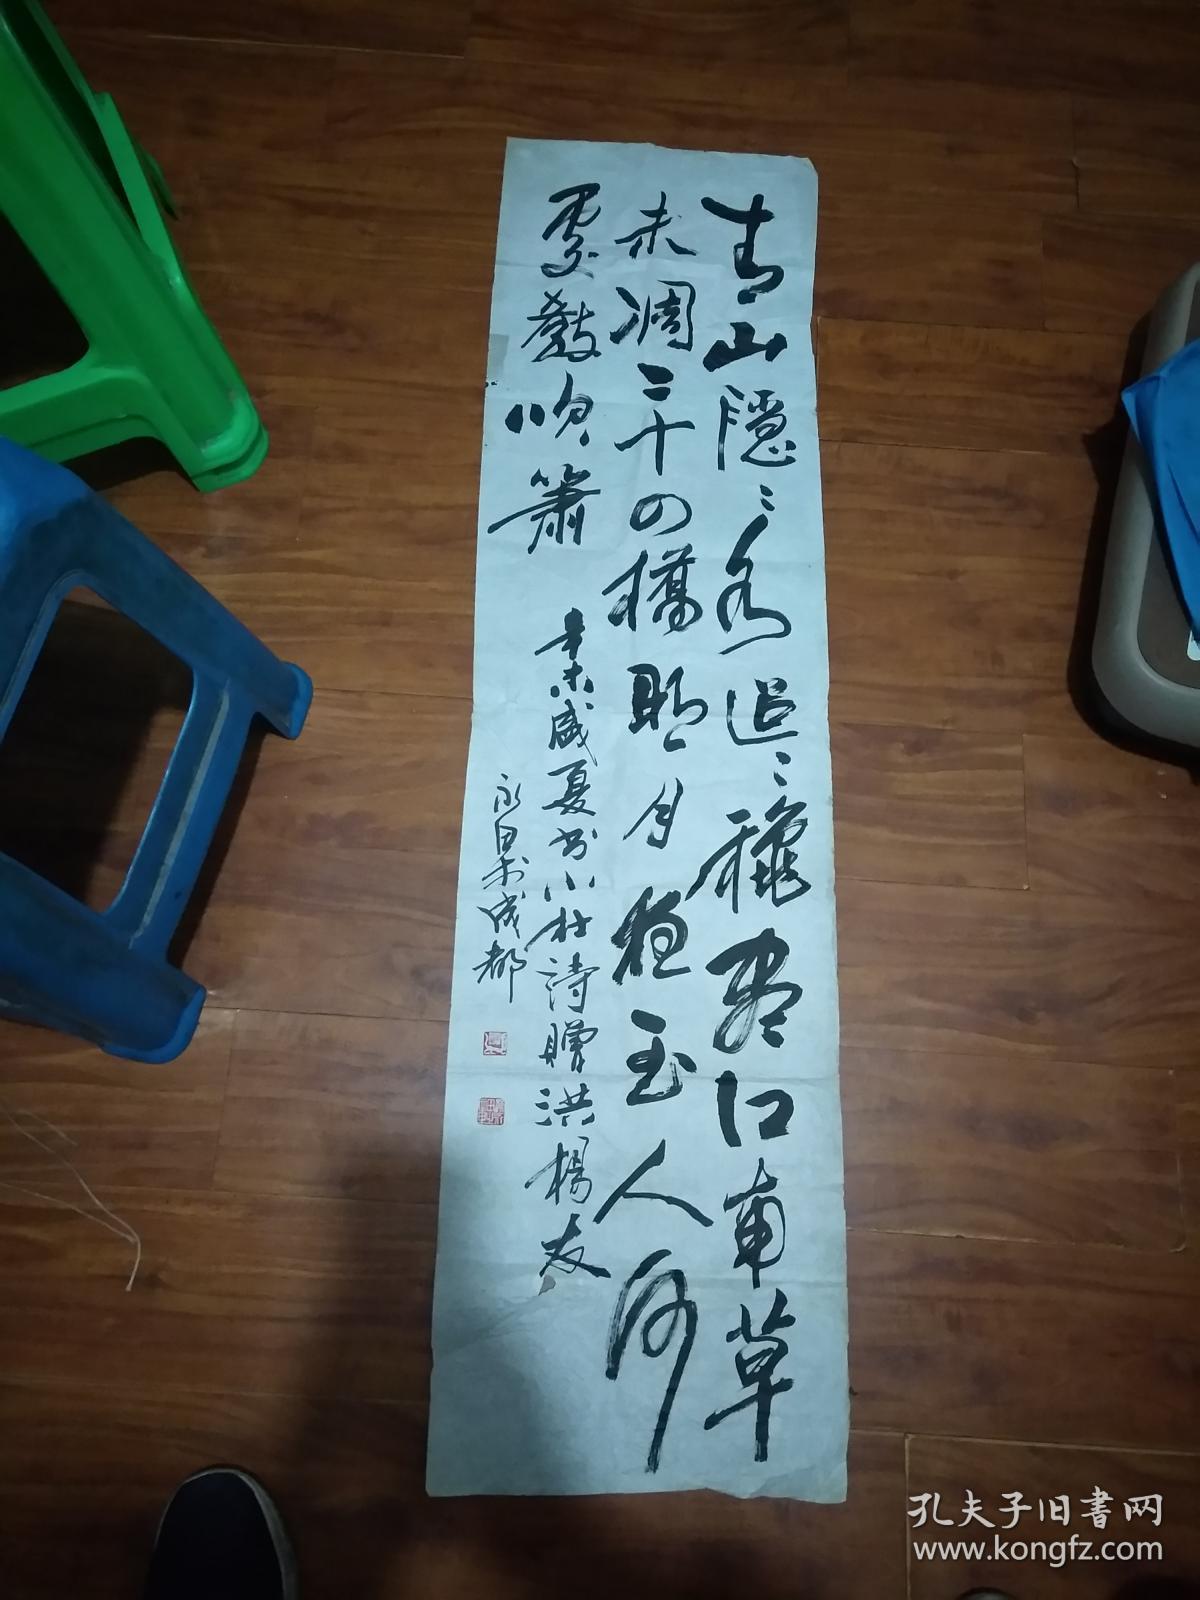 青山隐〻水迢〻龝尽江南草
未凋二十四橋明月夜玉人何
處教吹簫
辛未盛夏书小杜诗贈洪楊友
永昌于成都
孔夫子旧書网
www.kongfz.com